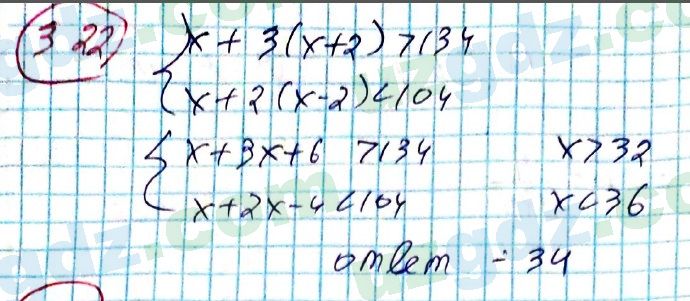 322
x + 3(x+2) > 134
x + 2(x-2) < 104
x + 3x + 6 > 134 x > 32
x + 2x - 4 < 104 x < 36
ответ - 34